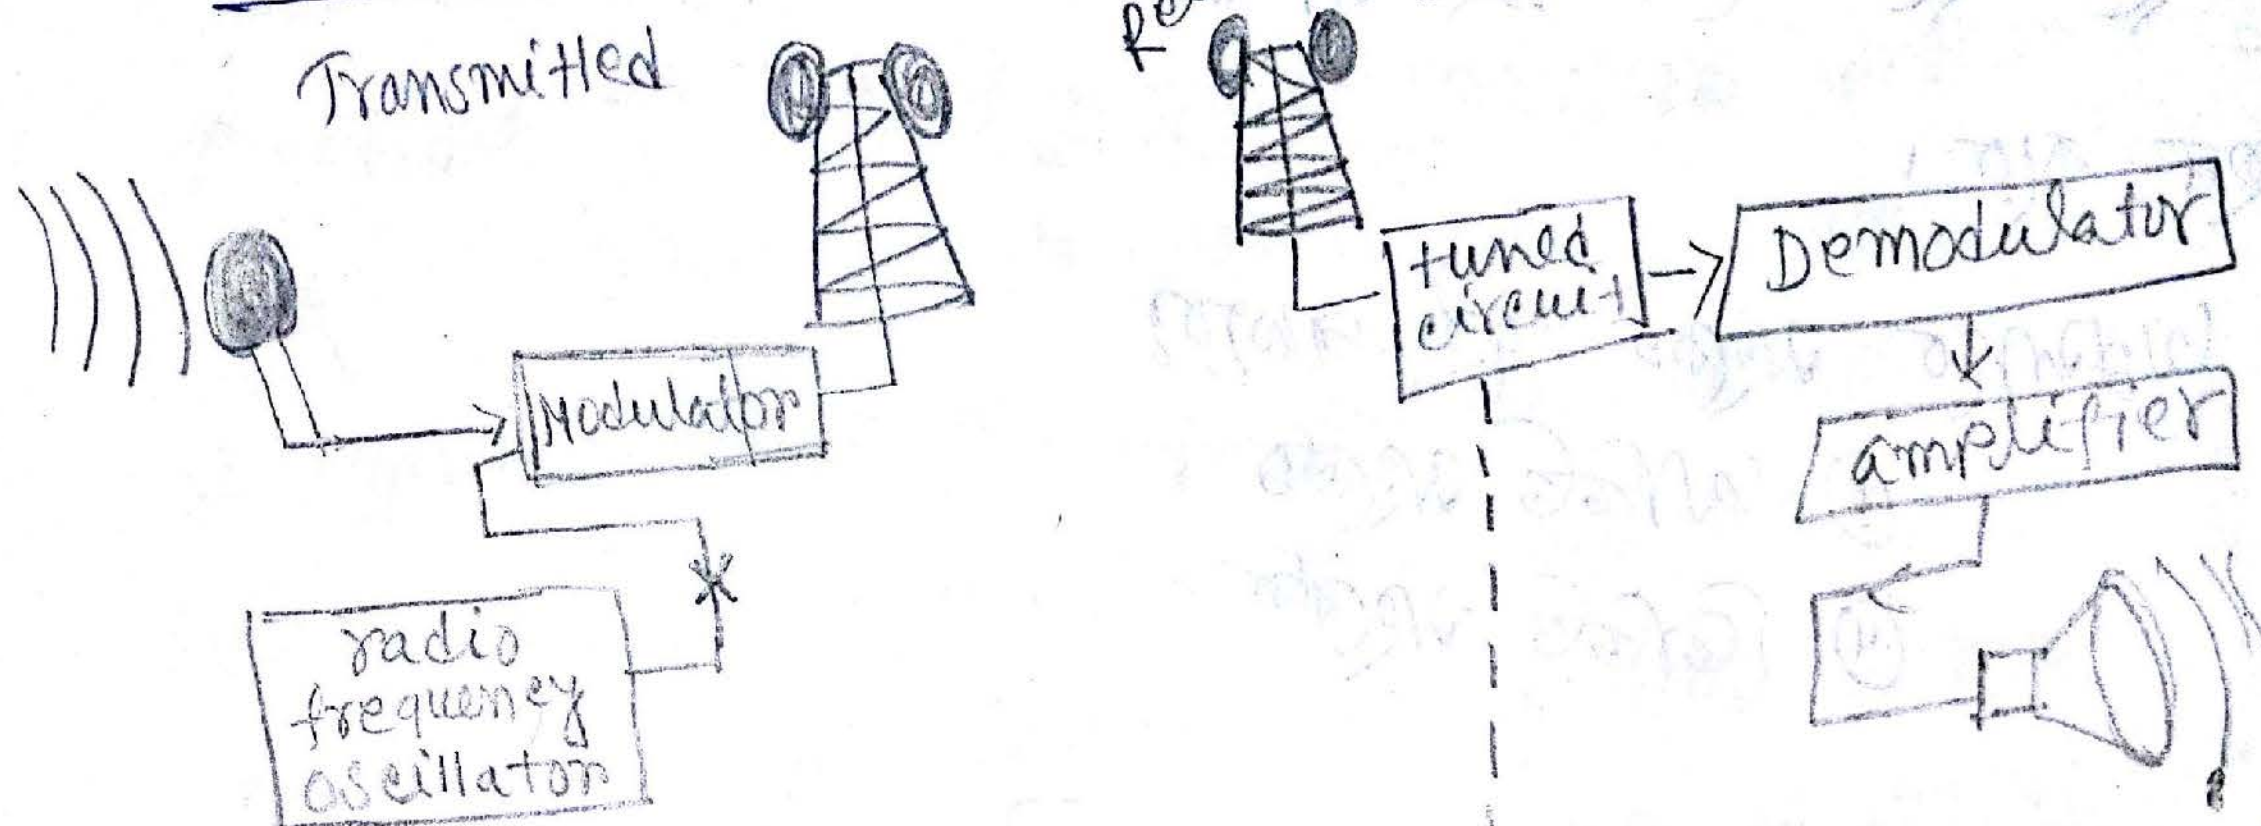 Transmitted
Modulator
radio
frequency
oscillator
tuned
circuit
Demodulator
amplifier